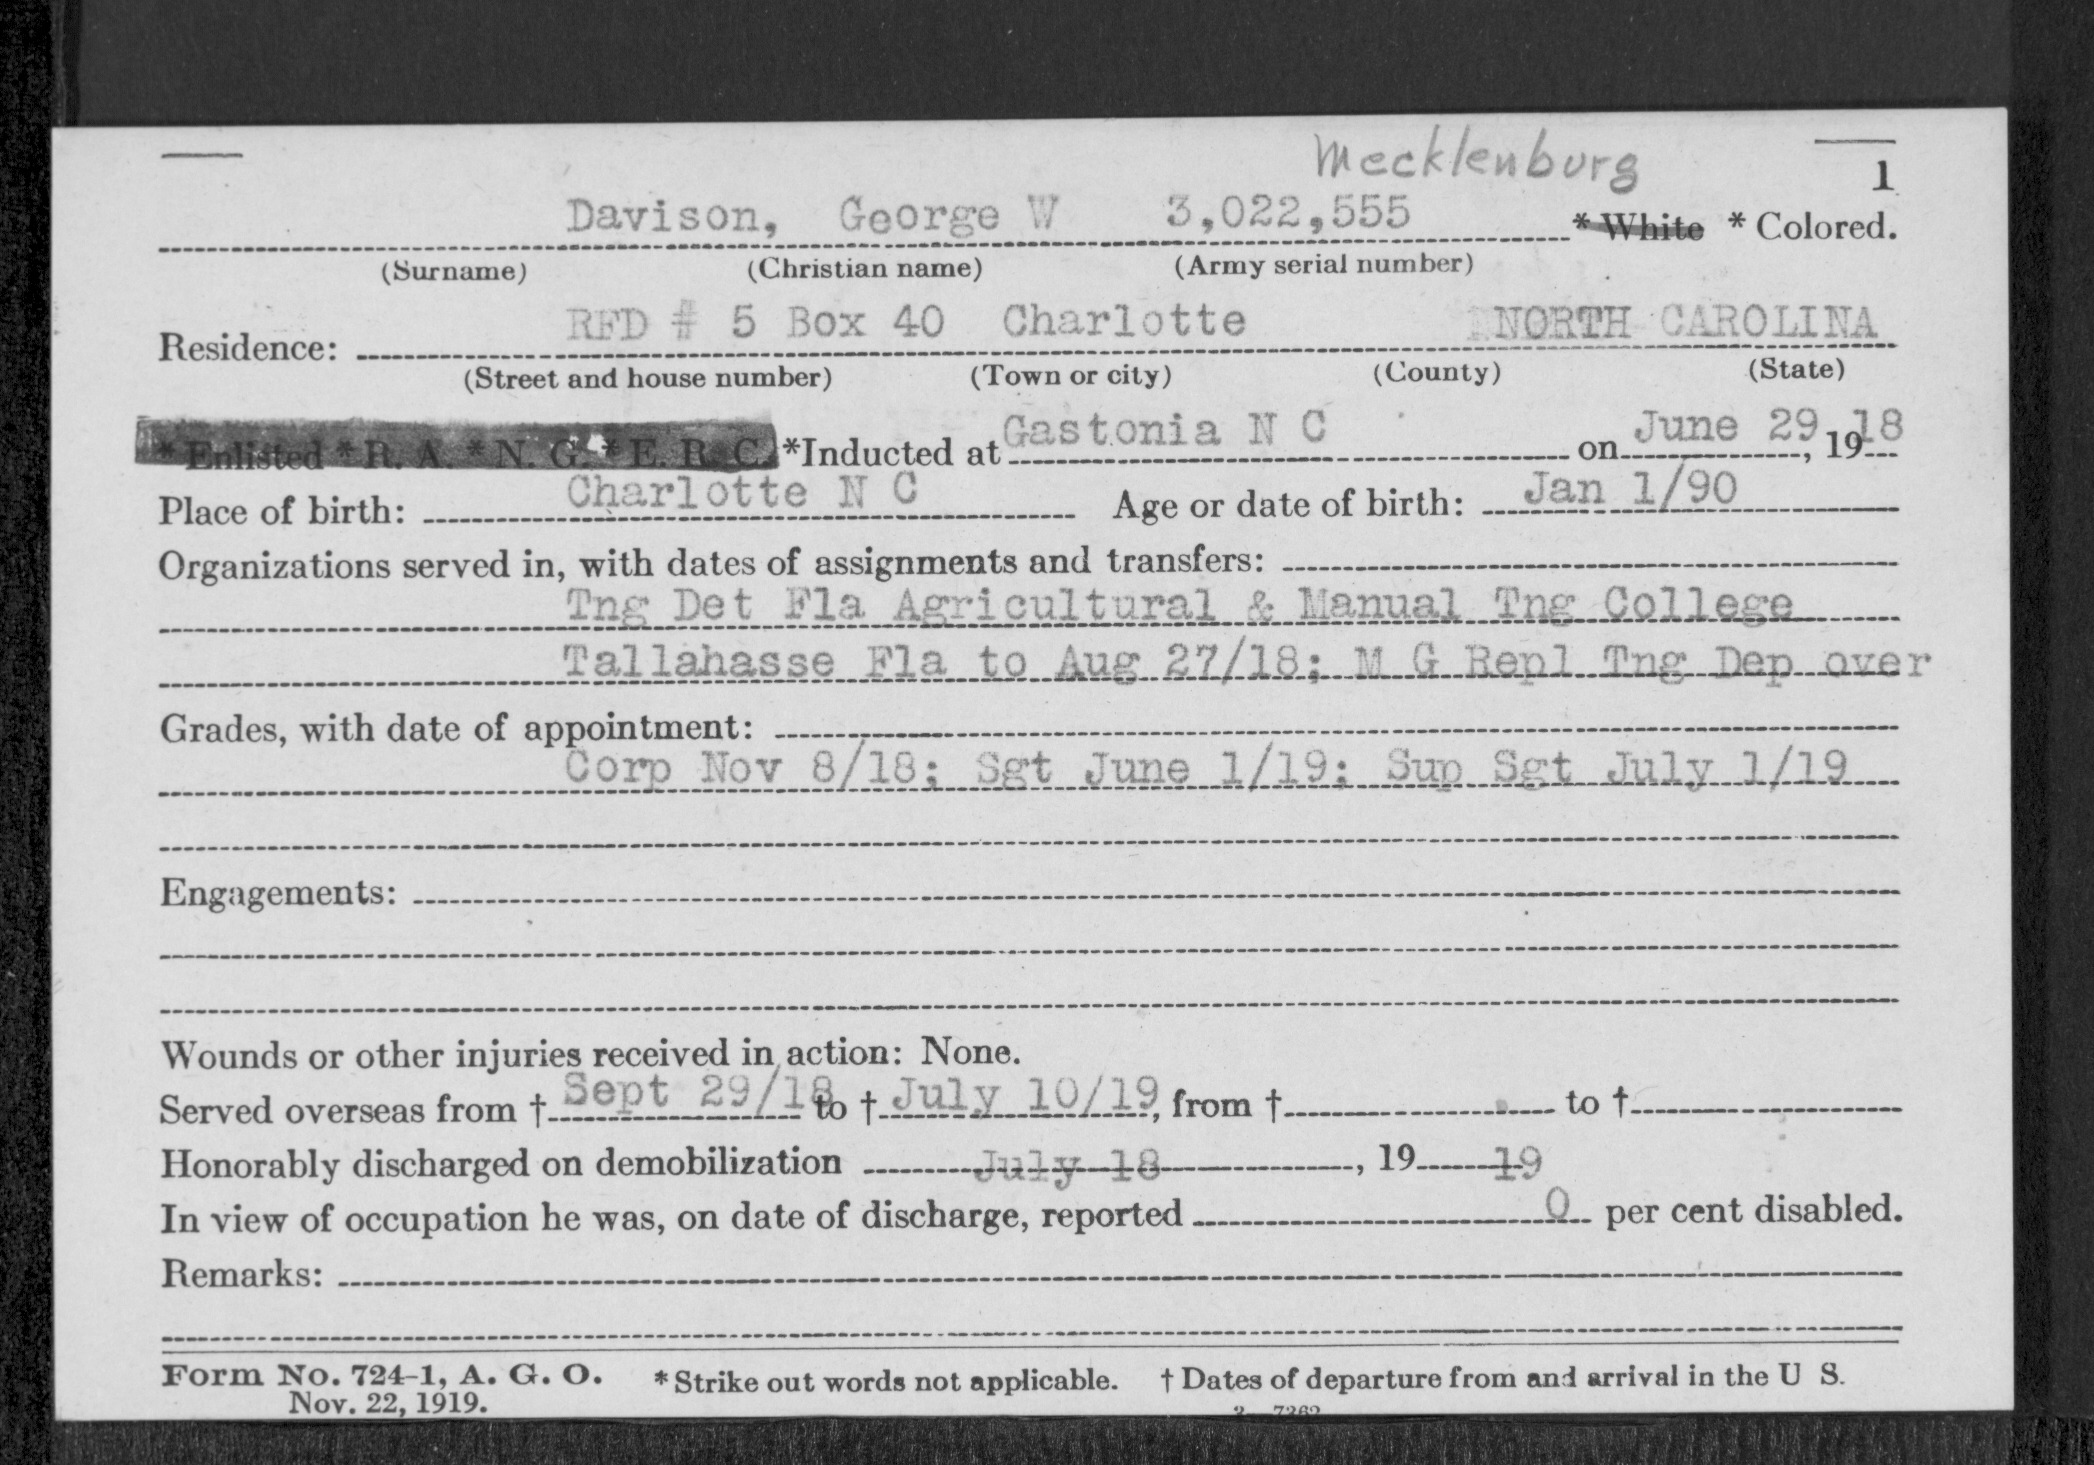 Mecklenburg
1
Davison, George W 3,022,555 * White * Colored.
(Surname) (Christian name) (Army serial number)
Residence: RFD # 5 Box 40 Charlotte NORTH CAROLINA
(Street and house number) (Town or city) (County) (State)
* Enlisted * R. A. * N. G. * E. R. C. *Inducted at Gastonia N C on June 29, 1918
Place of birth: Charlotte N C Age or date of birth: Jan 1/90
Organizations served in, with dates of assignments and transfers:
Tng Det Fla Agricultural & Manual Tng College
Tallahasse Fla to Aug 27/18; M G Repl Tng Dep over
Grades, with date of appointment:
Corp Nov 8/18; Sgt June 1/19; Sup Sgt July 1/19
Engagements:
Wounds or other injuries received in action: None.
Served overseas from † Sept 29/18 to † July 10/19, from † to †
Honorably discharged on demobilization July 18, 19 19
In view of occupation he was, on date of discharge, reported 0 per cent disabled.
Remarks:
Form No. 724-1, A. G. O. * Strike out words not applicable. † Dates of departure from and arrival in the U S.
Nov. 22, 1919.